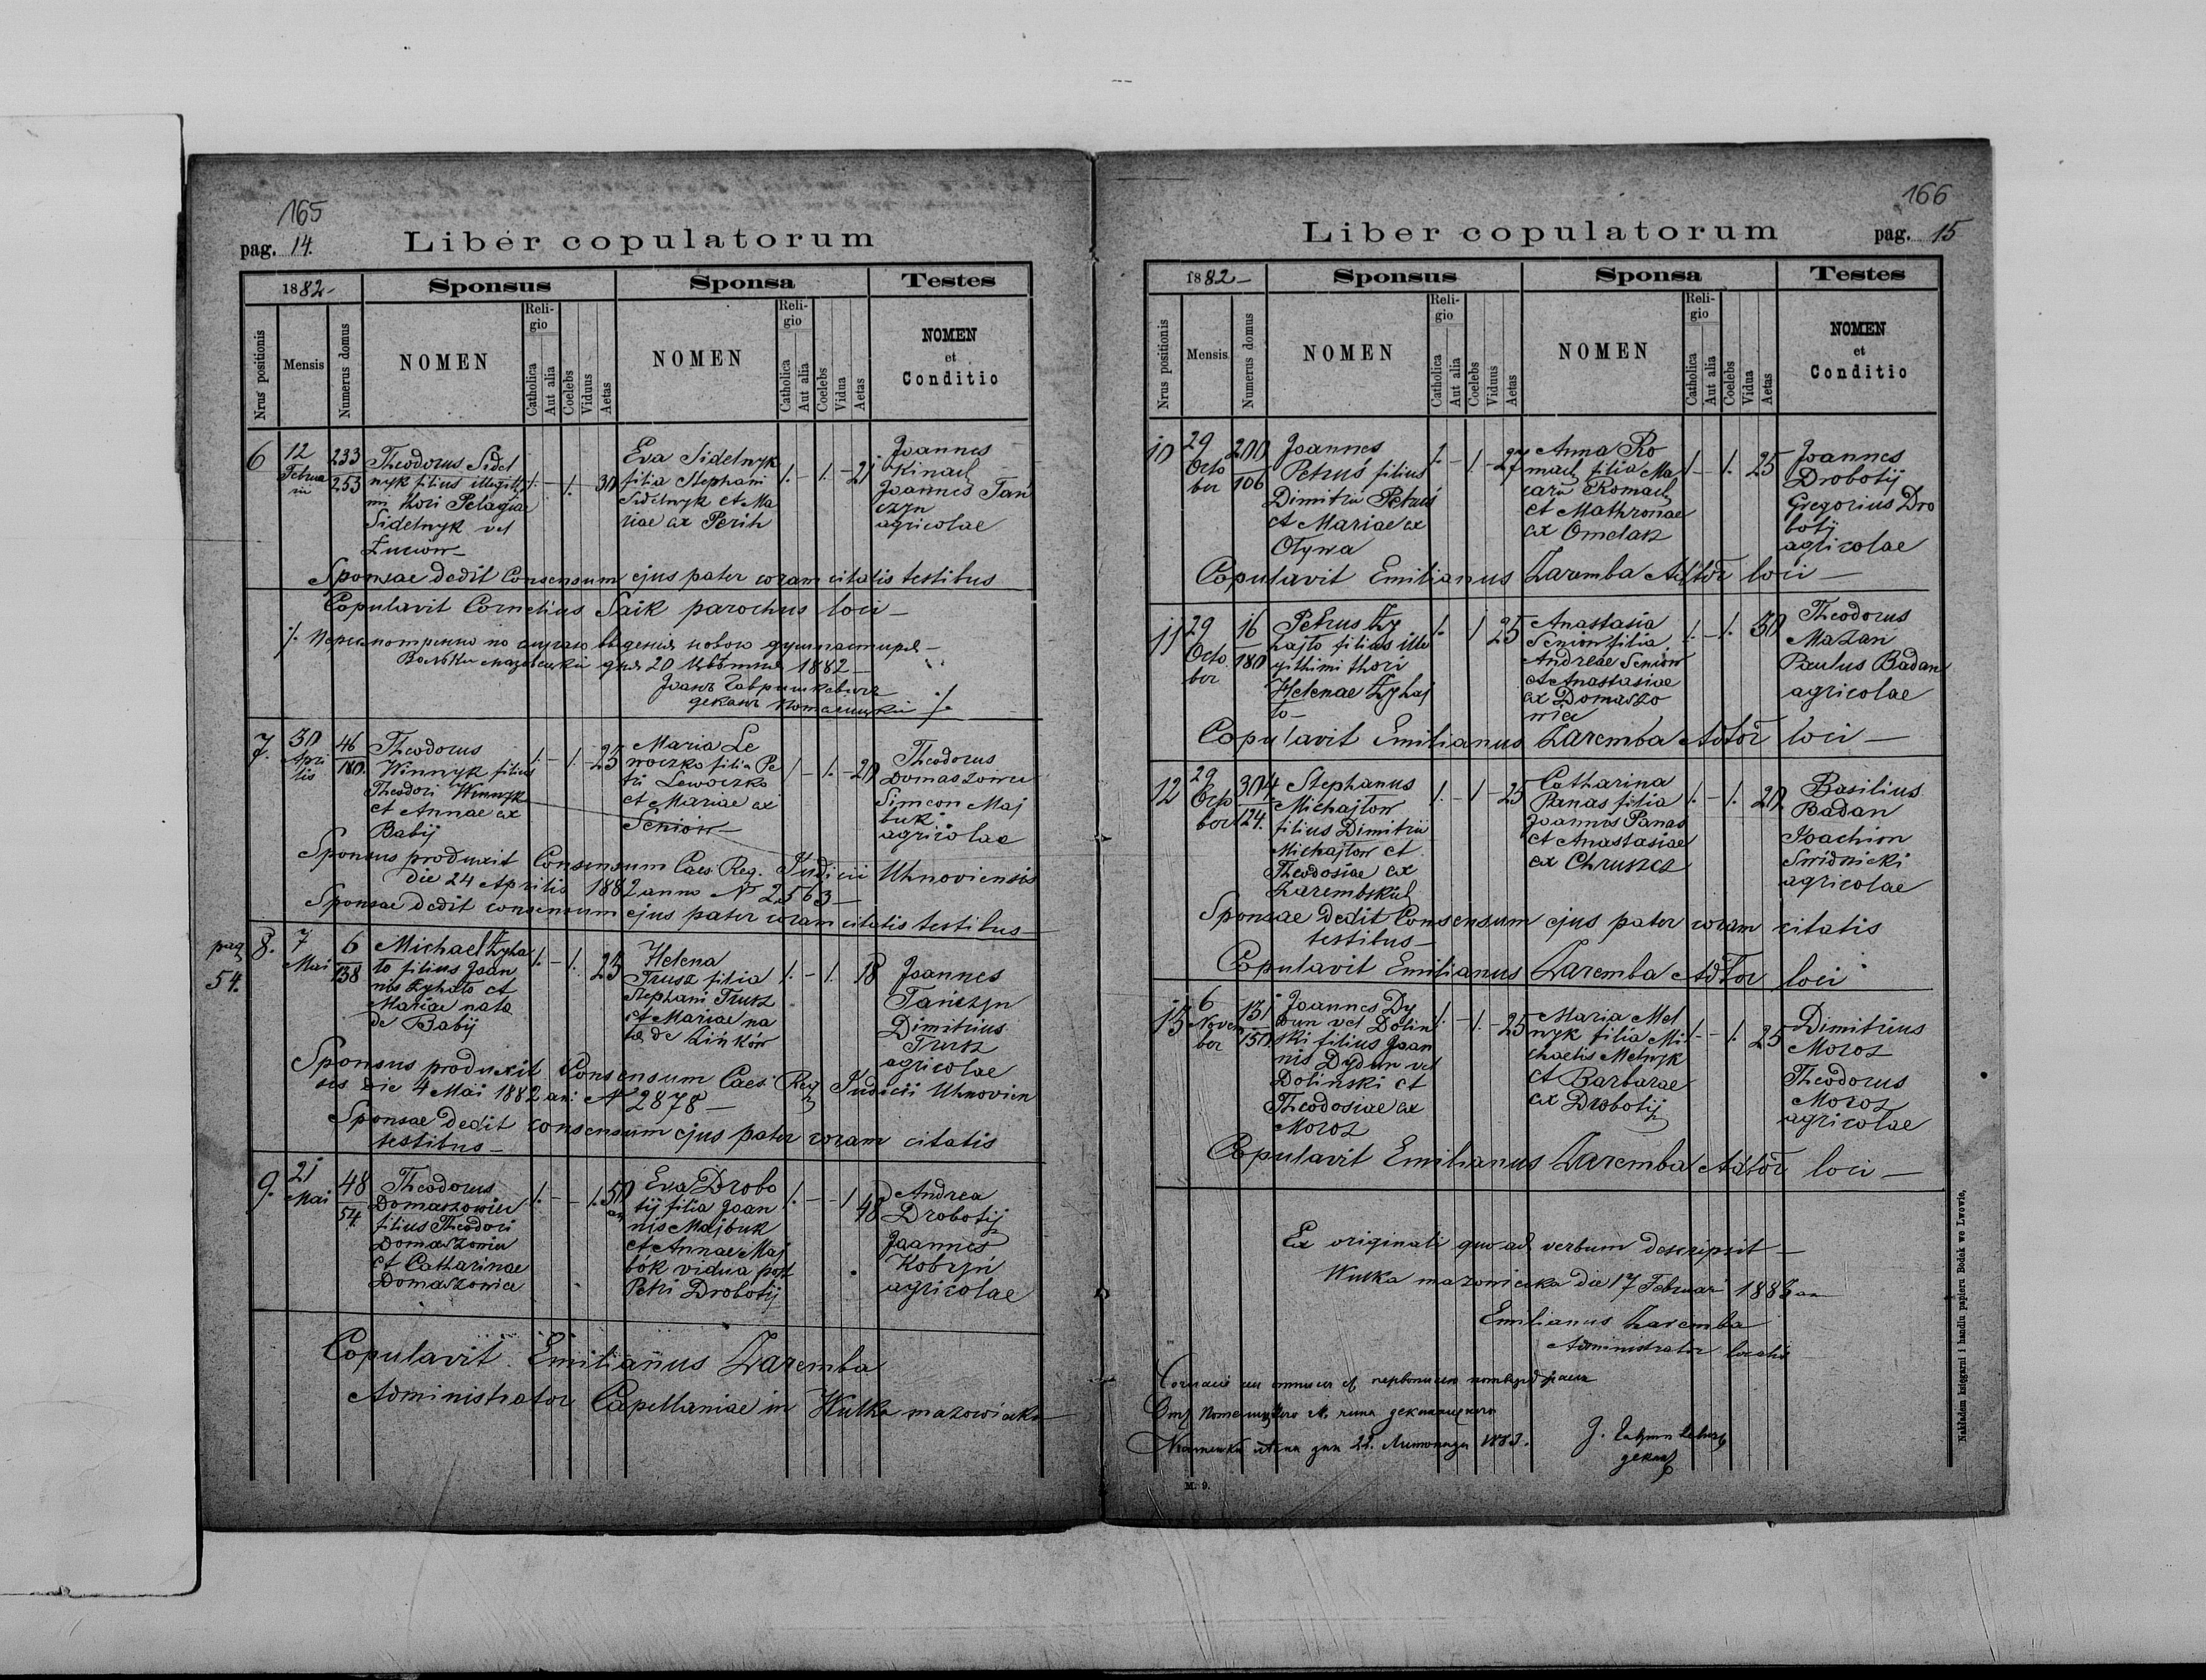 165
pag. 14.
Liber copulatorum
1882 -
Sponsus
Sponsa
Testes
Nrus positionis
Mensis
Numerus domus
NOMEN
Religio
Catholica
Aut alia
Coelebs
Viduus
Aetas
NOMEN
Religio
Catholica
Aut alia
Coelebs
Vidua
Aetas
NOMEN
et
Conditio
6
12
Februa
rii
233
253
Theodorus Sidel
nyk filius illegitti
mi thori Pelagiae
Sidelnyk vel
1. - 1. 30
Eva Sidelnyk
filia Stephani
Sidelnyk et Ma
riae ex Perih
1. - 1. - 21
Joannes
Kinach
Joannes Tań
czyn
agricolae
Sponsae dedit Consensum ejus pater coram citatis testibus
Copulavit Cornelius Saik parochus loci -
дня 20 1882 -
деканъ
7.
30
Apri
lis
46
180.
Theodorus
Winnyk filius
Theodori Winnyk
et Annae ex
Babij
1. - 1. - 25
Maria Le
woczko filia Pe
tri Lewoczko
et Mariae ex
Seniów -
1 - 1. - 20
Theodorus
Domaszowec
Simeon Maj
buk
agricolae
Sponsus produxit Consensum Caes. Reg. Judicii Uhnoviensis
die 24 Aprilis 1882 anno N 2563 -
Sponsae dedit consensum ejus pater coram citatis testibus -
pag
54.
8.
7
Mai
6
138
Michael Zyhaj
ło filius Joan
nis Zyhajło et
Mariae nata
de Babij
1. - 1. 25
Helena
Trusz filia
Stephani Trusz
et Mariae na
ta de Zińków
1. - 1. 18
Joannes
Tańczyn
Dimitrius
Trusz
agricolae
Sponsus produxit Consensum Caes. Reg Judicii Uhnovien
sis die 4 Mai 1882 an: N 2878 -
Sponsae dedit consensum ejus pater coram citatis
testibus -
9.
21
Mai
48
54.
Theodorus
Domaszowiec
filius Theodori
Domaszowiec
et Catharinae
Domaszowiec
1. - - 1. 50
Eva Drobo
tij filia Joan
nis Majbuk
et Annae Maj
bók vidua post
Petri Drobotij
1. - - 1 48
Andrea
Drobotij
Joannes
Kobryń
agricolae
Copulavit Emilianus Zaremba
Administrator Capellaniae in Wulka mazowiecka -
166
Liber copulatorum
pag. 15
1882 -
Sponsus
Sponsa
Testes
Nrus positionis
Mensis
Numerus domus
NOMEN
Religio
Catholica
Aut alia
Coelebs
Viduus
Aetas
NOMEN
Religio
Catholica
Aut alia
Coelebs
Vidua
Aetas
NOMEN
et
Conditio
10
29
Octo
ber
200
106
Joannes
Petruś filius
Dimitrii Petruś
et Mariae ex
Olywa
1. - 1. - 27
Anna Ro
mach filia Ma
carii Romach
et Mathronae
ex Omelan
1 - 1. 25
Joannes
Drobotij
Gregorius Dro
botij
agricolae
Copulavit Emilianus Zaremba Adtor loci -
11
29
Octo
ber
16
180
Petrus Zy
hajło filius ille
gitthimi thori
Helenae Zyhaj
ło -
1. 1 25
Anastasia
Seniow filia
Andreae Seniow
et Anastasiae
ex Domaszo
wiec
1. - 1. 30
Theodorus
Mazan
Paulus Badan
agricolae
Copulavit Emilianus Zaremba Adtor loci -
12
29
Octo
ber
304
124.
Stephanus
Michajłow
filius Dimitrii
Michajłow et
Theodosiae ex
1. - 1 - 25
Catharina
Panas filia
Joannis Panas
et Anastasiae
ex Chruszcz
1. - 1. 20
Basilius
Badan
Joachim
Swidnicki
agricolae
Sponsae dedit Consensum ejus pater coram citatis
testibus -
Copulavit Emilianus Zaremba Adtor loci
13
6
Novem
ber
131
150
Joannes Dy
dun vel Dolin
ski filius Joan
nis Dydun vel
Dolinski et
Theodosiae ex
Moroz
1. - 1. - 25
Maria Mel
nyk filia Mi
chaelis Melnyk
et Barbarae
ex Drobotij
1 - 1. 25
Dimitrius
Moroz
Theodorus
Moroz
agricolae
Copulavit Emilianus Zaremba Adtor loci -
Ex originali quoad verbum descripsit -
Wulka mazowiecka die 17 Februarii 1883
Emilianus Zaremba
Administrator localis
дня 22. 1883.
декан
M. 9.
Nakładem księgarni i handlu papieru Bodek we Lwowie.